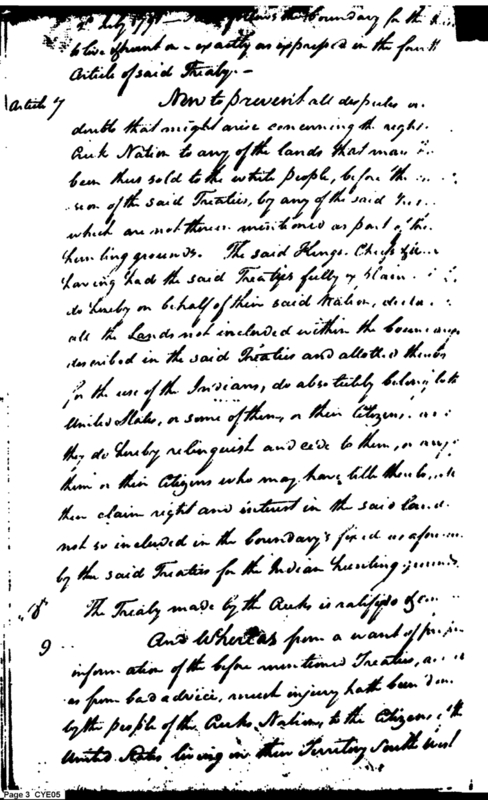 2d July 1791 — follows the boundary for the
to live & hunt on – exactly as expressed in the fourth
Article of said Treaty. –
Article 7 Now to prevent all desputes or
doubts that might arise concerning the right
Creek Nation to any of the lands that may
been thus sold to the white people, before the
sion of the said Treaties, by any of the said
which are not therein mentioned as part of the
hunting grounds. The said Kings Chiefs &
having had the said Treatys fully explain
do hereby on behalf of their said Nation, decla
all the Lands not included within the boundarys
described in the said Treaties and allotted thereby
for the use of the Indians, do absolutely belong to the
United States, or some of them, or their Citizens.
they do hereby relinquish and cede to them, or any
them or their Citizens who may have title thereto,
their claim right and interest in the said land
not so included in the boundary's fixed as afore
by the said Treaties for the Indian hunting grounds
8 The Treaty made by the Creeks is ratified &
9 And Whereas from a want of proper
information of the before mentioned Treaties,
as from bad advice, much injury hath been done
by the people of the Creek Nation, to the Citizens of the
United States living in their Territory South West
Page 3 CYE05